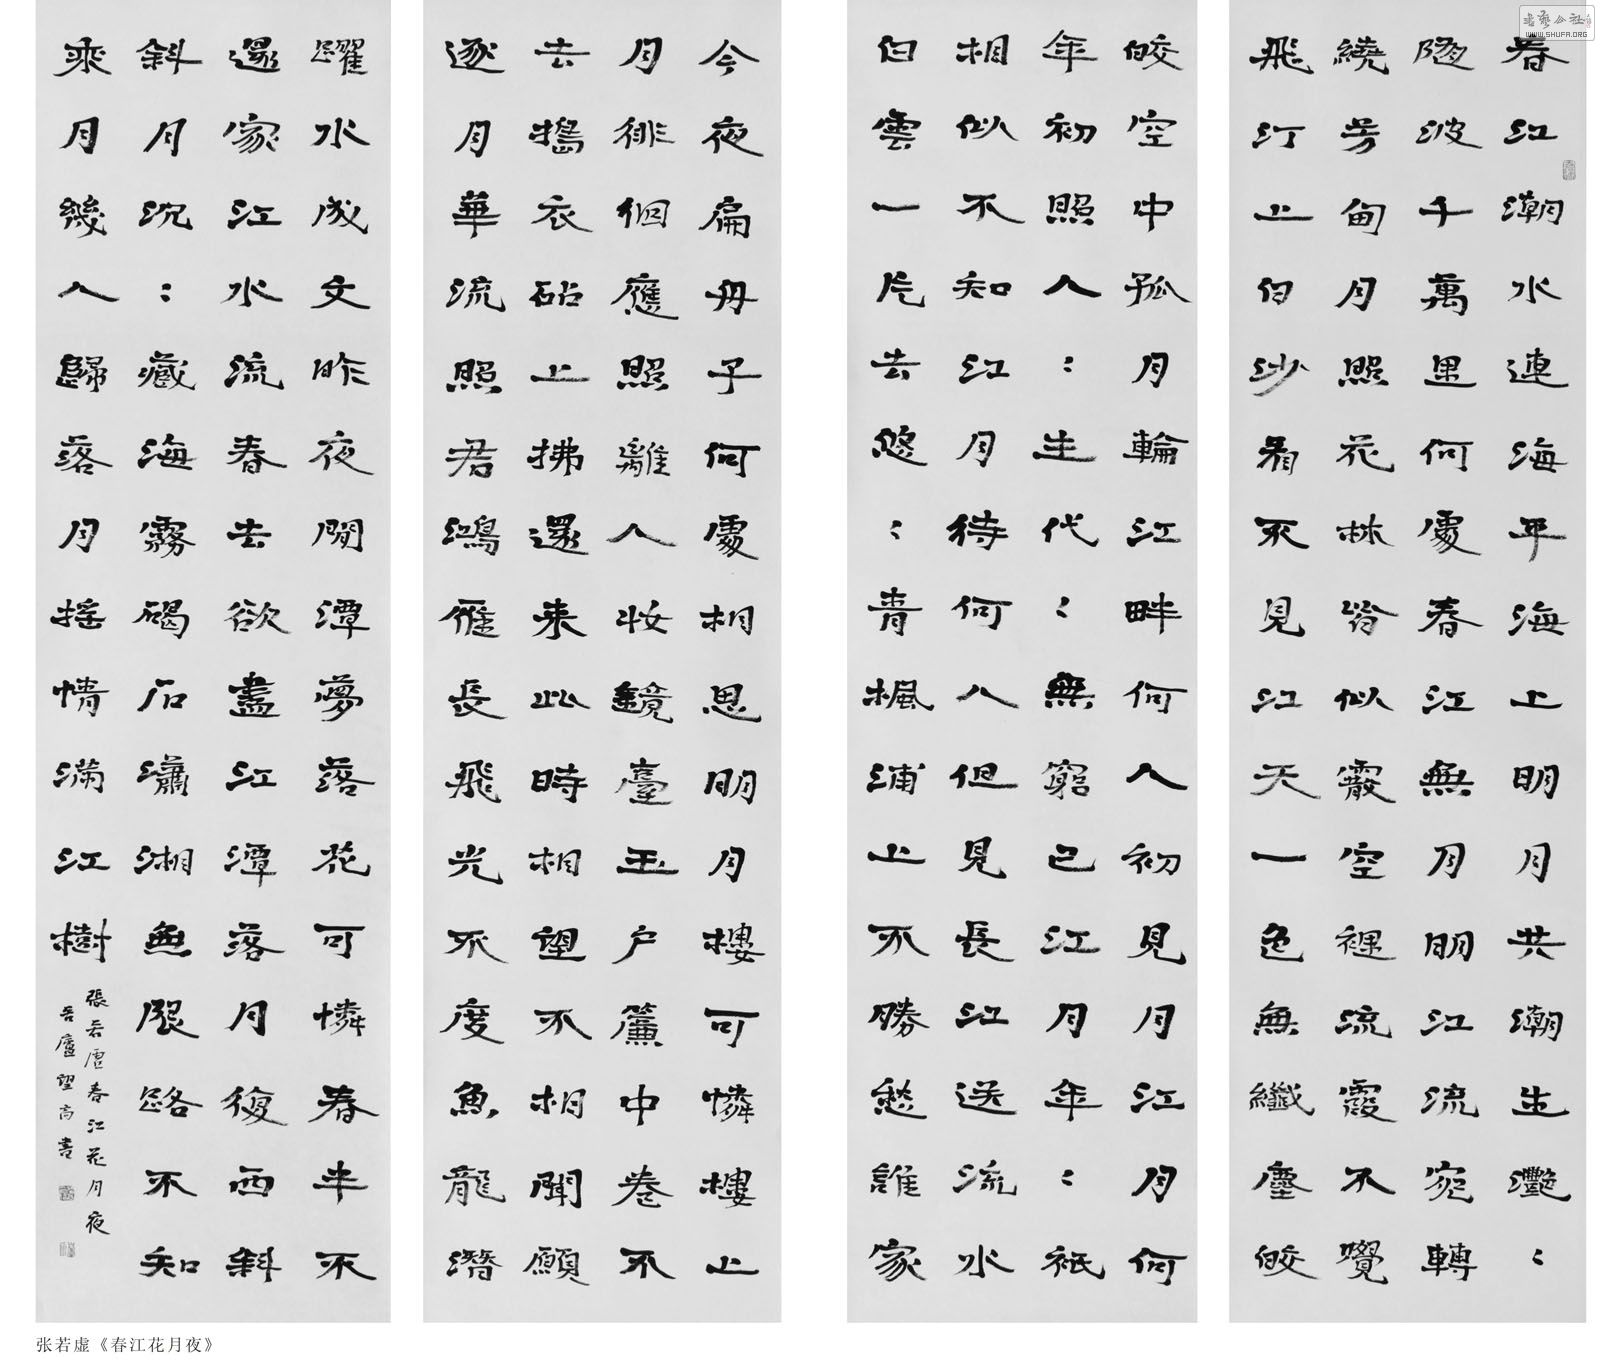 春江潮水連海平海上明月共潮生灩：
隨波千萬里何處春江無月明江流宛轉
繞芳甸月照花林皆似霰空裡流霞不覺
飛汀上白沙看不見江天一色無纖塵皎
皎空中孤月輪江畔何人初見月江月何
年初照人：生代：無窮已江月年：祇
相似不知江月待何人但見長江送流水
白雲一片去悠：青楓浦上不勝愁誰家
今夜扁舟子何處相思明月樓可憐樓上
月徘徊應照離人妝鏡臺玉户簾中卷不
去搗衣砧上拂還来此時相望不相聞願
逐月華流照君鴻雁長飛光不度魚龍潛
躍水成文昨夜閒潭夢落花可憐春半不
還家江水流春去欲盡江潭落月復西斜
斜月沉：藏海霧碣石瀟湘無限路不知
乘月幾人歸落月搖情滿江樹
張若虛春江花月夜
吾廬望高書
张若虚《春江花月夜》
書藝公社
WWW.SHUFA.ORG